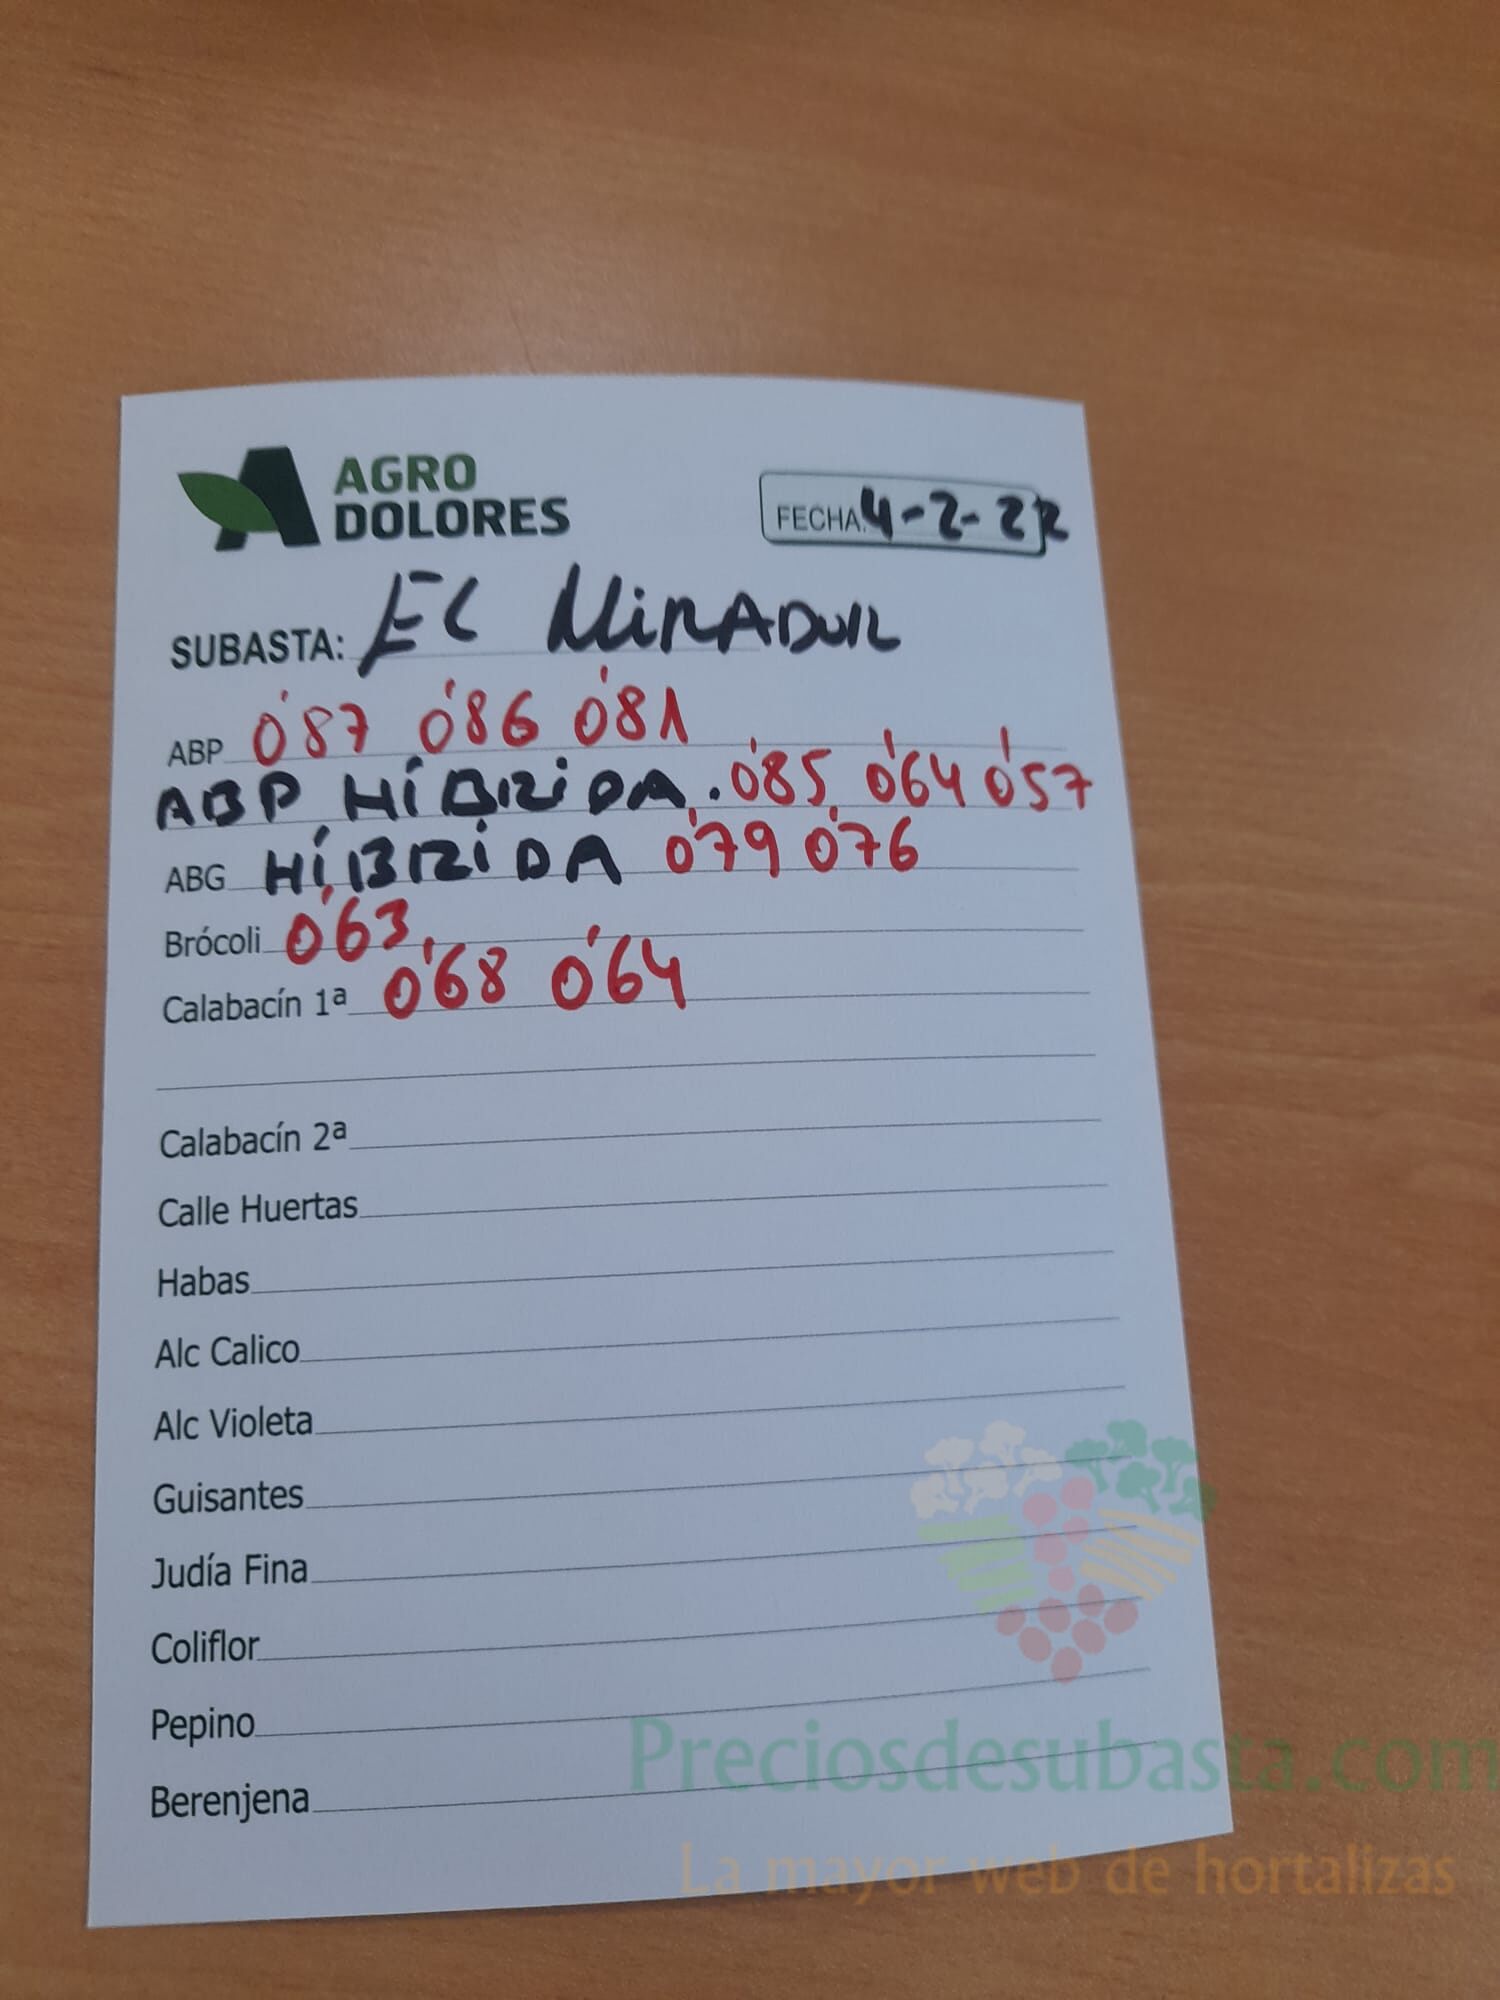 AGRO
DOLORES
FECHA: 4-2-22
SUBASTA: EL MIRADOR
ABP 0'87 0'86 0'81
ABP HÍBRIDA. 0'85 0'64 0'57
ABG HÍBRIDA 0'79 0'76
Brócoli 0'63
Calabacín 1ª 0'68 0'64
Calabacín 2ª
Calle Huertas
Habas
Alc Calico
Alc Violeta
Guisantes
Judía Fina
Coliflor
Pepino
Berenjena
Preciosdesubasta.com
La mayor web de hortalizas